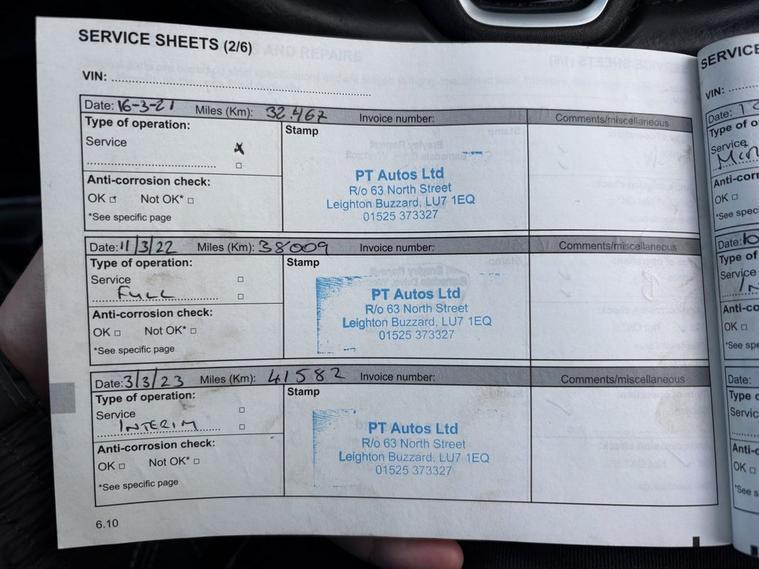 SERVICE SHEETS (2/6)
VIN:
Date: 16-3-21 Miles (Km): 32.467 Invoice number: Comments/miscellaneous
Type of operation:
Service
Stamp
Anti-corrosion check:
OK Not OK*
*See specific page
PT Autos Ltd
R/o 63 North Street
Leighton Buzzard, LU7 1EQ
01525 373327
Date: 11/3/22 Miles (Km): 38009 Invoice number: Comments/miscellaneous
Type of operation:
Service
FULL
Stamp
Anti-corrosion check:
OK Not OK*
*See specific page
PT Autos Ltd
R/o 63 North Street
Leighton Buzzard, LU7 1EQ
01525 373327
Date: 3/3/23 Miles (Km): 41582 Invoice number: Comments/miscellaneous
Type of operation:
Service
INTERIM
Stamp
Anti-corrosion check:
OK Not OK*
*See specific page
PT Autos Ltd
R/o 63 North Street
Leighton Buzzard, LU7 1EQ
01525 373327
6.10
SERVICE
VIN:
Date:
Type of
Service
OK
*See
Date:
Type of
Service
OK
*See
Date:
Type
OK